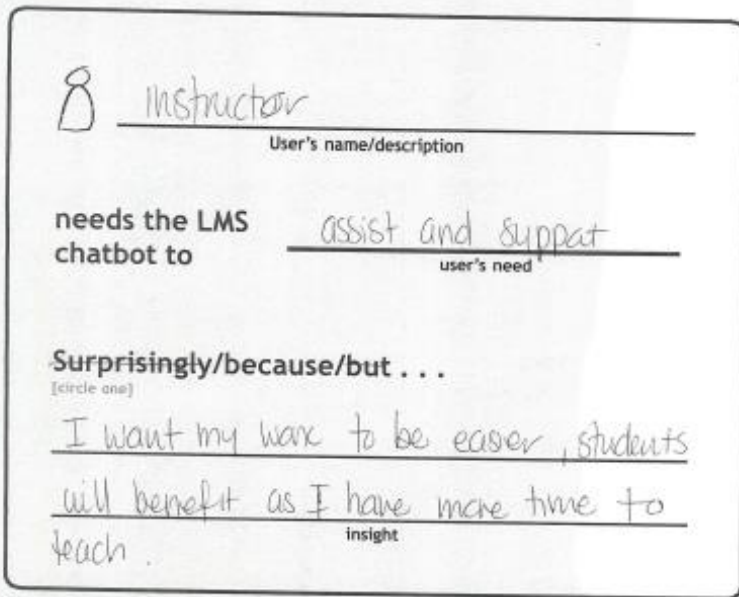 instructor
User's name/description
needs the LMS assist and support
chatbot to
user's need
Surprisingly/because/but . . .
[circle one]
I want my work to be easier, students
will benefit as I have more time to
insight
teach.